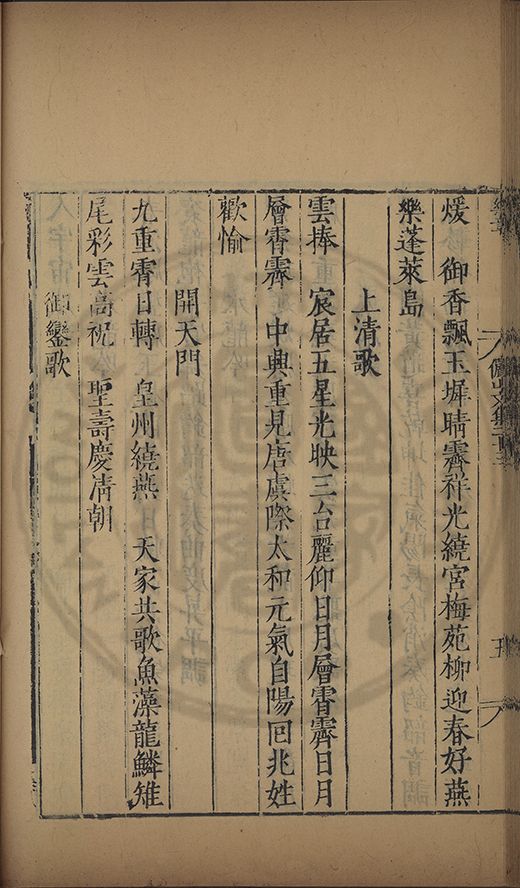 煖 御香飄玉墀晴霽祥光繞宮梅苑柳迎春好燕
樂蓬萊島
上清歌
雲捧 宸居五星光映三台麗仰日月層霄霽日月
層霄霽 中興重見唐虞際太和元氣自陽回兆姓
歡愉
開天門
九重霄日轉 皇州繞燕 天家共歌魚藻龍鱗雉
尾彩雲高祝 聖壽慶清朝
御鑾歌